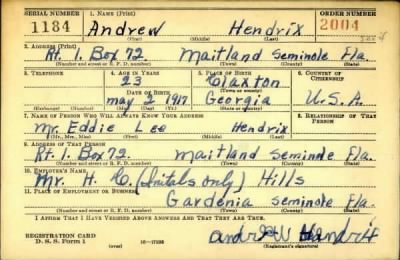 SERIAL NUMBER 1. NAME (Print) ORDER NUMBER
1184 Andrew Hendrix 2004
(First) (Middle) (Last)
2. ADDRESS (Print)
Rt. 1. Box 72 Maitland Seminole Fla.
(Number and street or R. F. D. number) (Town) (County) (State)
3. TELEPHONE 4. AGE IN YEARS 5. PLACE OF BIRTH 6. COUNTRY OF CITIZENSHIP
23 Claxton
DATE OF BIRTH (Town or county)
May 2 1917 Georgia U.S.A.
(Exchange) (Number) (Mo.) (Day) (Yr.) (State or country)
7. NAME OF PERSON WHO WILL ALWAYS KNOW YOUR ADDRESS 8. RELATIONSHIP OF THAT PERSON
Mr. Eddie Lee Hendrix
(Mr., Mrs., Miss) (First) (Middle) (Last)
9. ADDRESS OF THAT PERSON
Rt. 1. Box 72. Maitland Seminole Fla.
(Number and street or R. F. D. number) (Town) (County) (State)
10. EMPLOYER'S NAME
Mr. H. (Initals only) Hills
11. PLACE OF EMPLOYMENT OR BUSINESS
Gardenia Seminole Fla.
(Number and street or R. F. D. number) (Town) (County) (State)
I AFFIRM THAT I HAVE VERIFIED ABOVE ANSWERS AND THAT THEY ARE TRUE.
REGISTRATION CARD
D. S. S. Form 1 (over) Andrew Hendrix
(Registrant's signature)